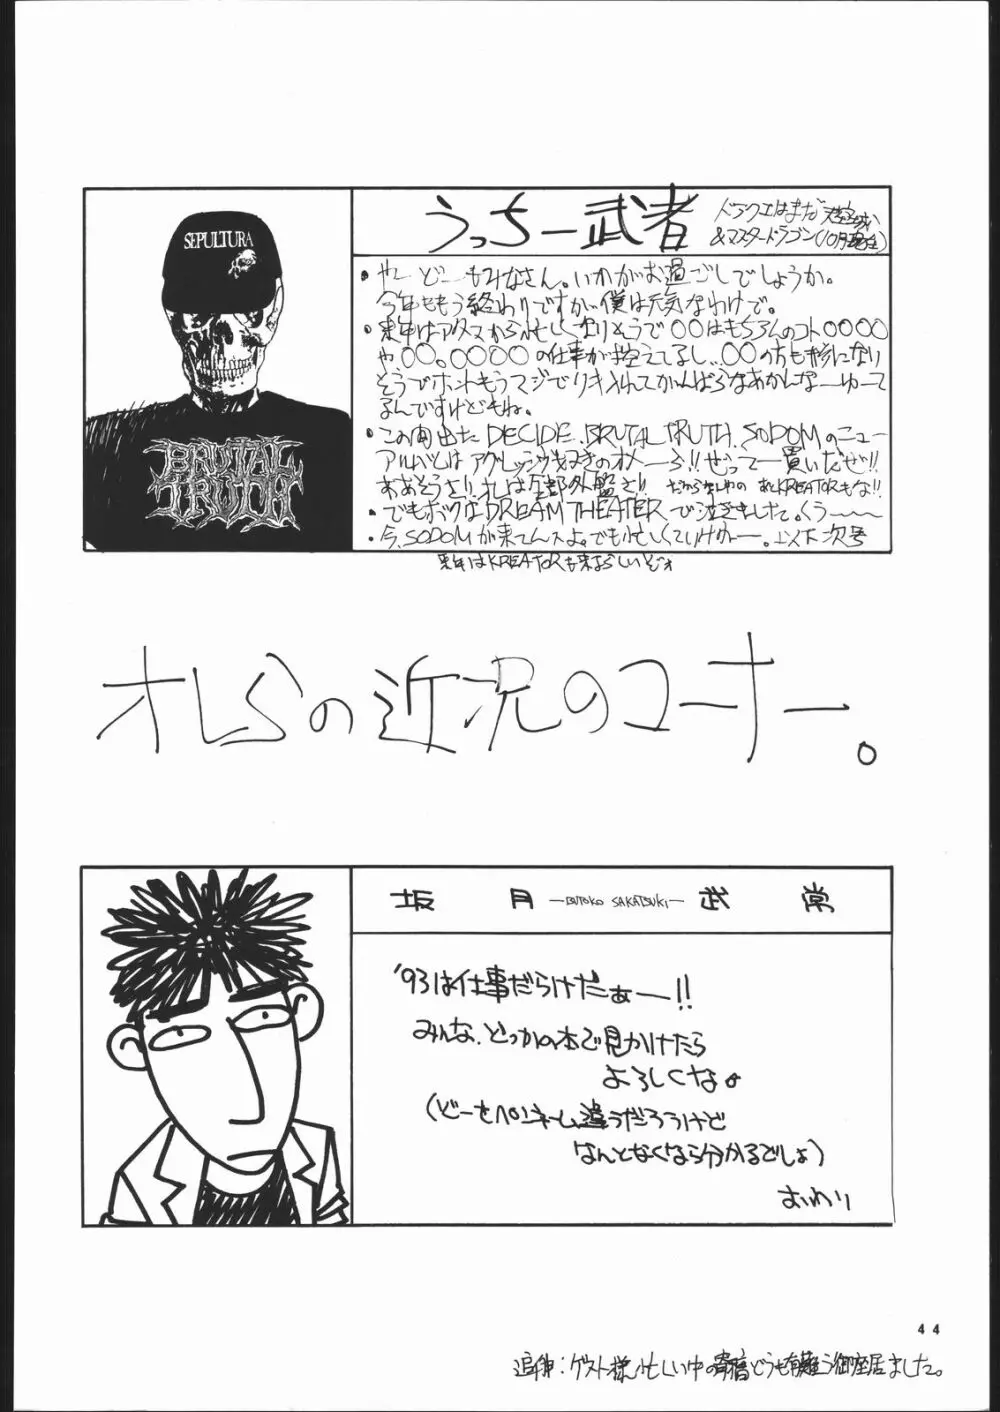 うっちー武者
ドラクエはまだ天空城
&マスタードラゴン(10月現在)
SEPULTURA
BRUTAL
TRUTH
・やー どーもみなさん。いかがお過ごしでしょうか。
今年ももう終わりですが僕は元気なわけで。
・来年はアタマから忙しくなりそうで〇〇はもちろんのコト〇〇〇〇
や〇〇。〇〇〇〇の仕事が控えてるし…〇〇の方も参になり
そうでホントもうマジでリキ入れてかんばらなあかんなーゆーて
るんですけどもね。
・この間出た DECIDE、BRUTAL TRUTH、SODOMのニュー
アルバムはアグレッシヴ好きのオメーら!!ぜってー買いだぜ!!
ああそうさ!!オレは全部外盤さ!! あKREATORもな!!
・でもボクはDREAM THEATERで泣きました。くうーーー
・今、SODOMが来てんスよ。でも忙しくていけねー。以下次号
来年はKREATORも来るらしいどぉ
オレらの近況のコーナー。
坂月 —BUTOKO SAKATSUKI— 武常
'93は仕事だらけだぁー!!
みんな、どっかの本で見かけたら
よろしくな。
(どーせペンネーム違うだろうけど
なんとなくなら分かるでしょ)
おわり
44
追伸：ゲスト様、忙しい中の寄稿どうも有難う御座居ました。